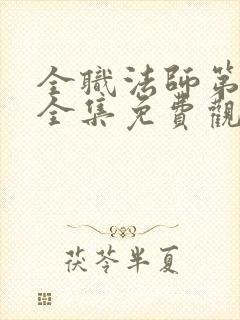 全職法師第
全集免費觀
茯苓半夏